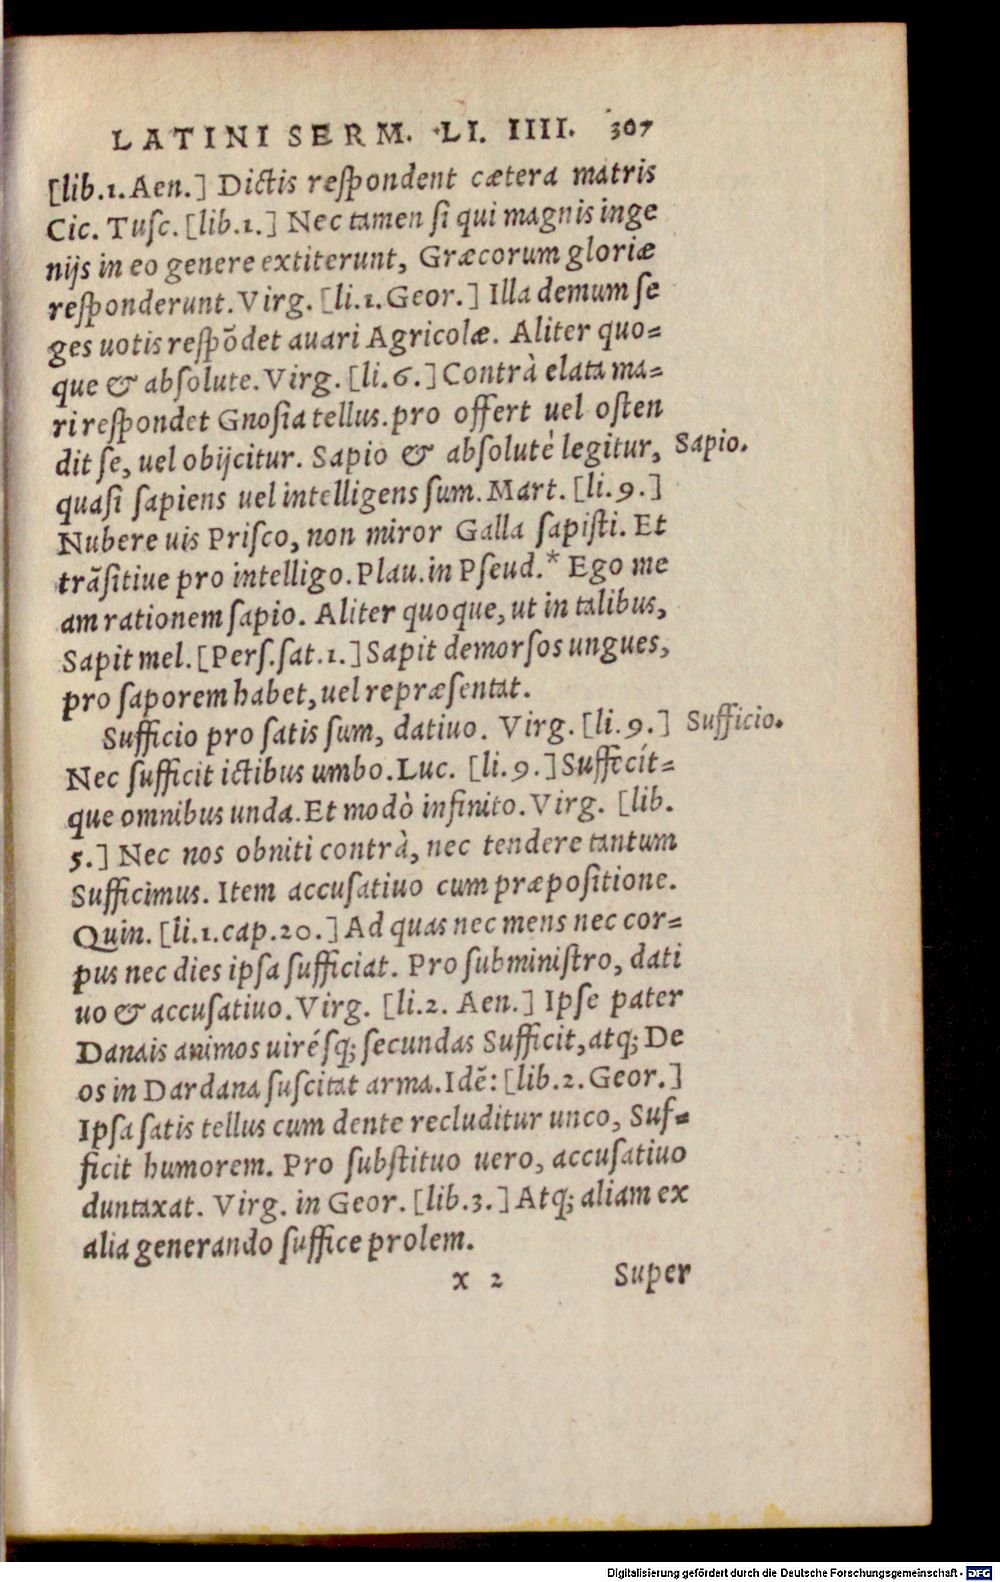 LATINI SERM. LI. IIII. 307
[lib.1.Aen.] Dictis respondent cætera matris
Cic. Tusc. [lib.1.] Nec tamen si qui magnis inge
nijs in eo genere extiterunt, Græcorum gloriæ
responderunt. Virg. [li.1.Geor.] Illa demum se
ges uotis respōdet auari Agricolæ. Aliter quo=
que & absolute. Virg. [li.6.] Contrà elata ma=
ri respondet Gnosia tellus. pro offert uel osten
dit se, uel obijcitur. Sapio & absolutè legitur, Sapio.
quasi sapiens uel intelligens sum. Mart. [li.9.]
Nubere uis Prisco, non miror Galla sapisti. Et
trāsitiue pro intelligo. Plau. in Pseud.* Ego me
am rationem sapio. Aliter quoque, ut in talibus,
Sapit mel. [Pers.sat.1.] Sapit demorsos ungues,
pro saporem habet, uel repræsentat.
Sufficio pro satis sum, datiuo. Virg. [li.9.] Sufficio.
Nec sufficit ictibus umbo. Luc. [li.9.] Suffecít=
que omnibus unda. Et modò infinito. Virg. [lib.
5.] Nec nos obniti contrà, nec tendere tantum
Sufficimus. Item accusatiuo cum præpositione.
Quin. [li.1.cap.20.] Ad quas nec mens nec cor=
pus nec dies ipsa sufficiat. Pro subministro, dati
uo & accusatiuo. Virg. [li.2. Aen.] Ipse pater
Danais animos uirésq; secundas Sufficit, atq; De
os in Dardana suscitat arma. Idē: [lib.2. Geor.]
Ipsa satis tellus cum dente recluditur unco, Suf=
ficit humorem. Pro substituo uero, accusatiuo
duntaxat. Virg. in Geor. [lib.3.] Atq; aliam ex
alia generando suffice prolem.
x 2 Super
Digitalisierung gefördert durch die Deutsche Forschungsgemeinschaft - DFG